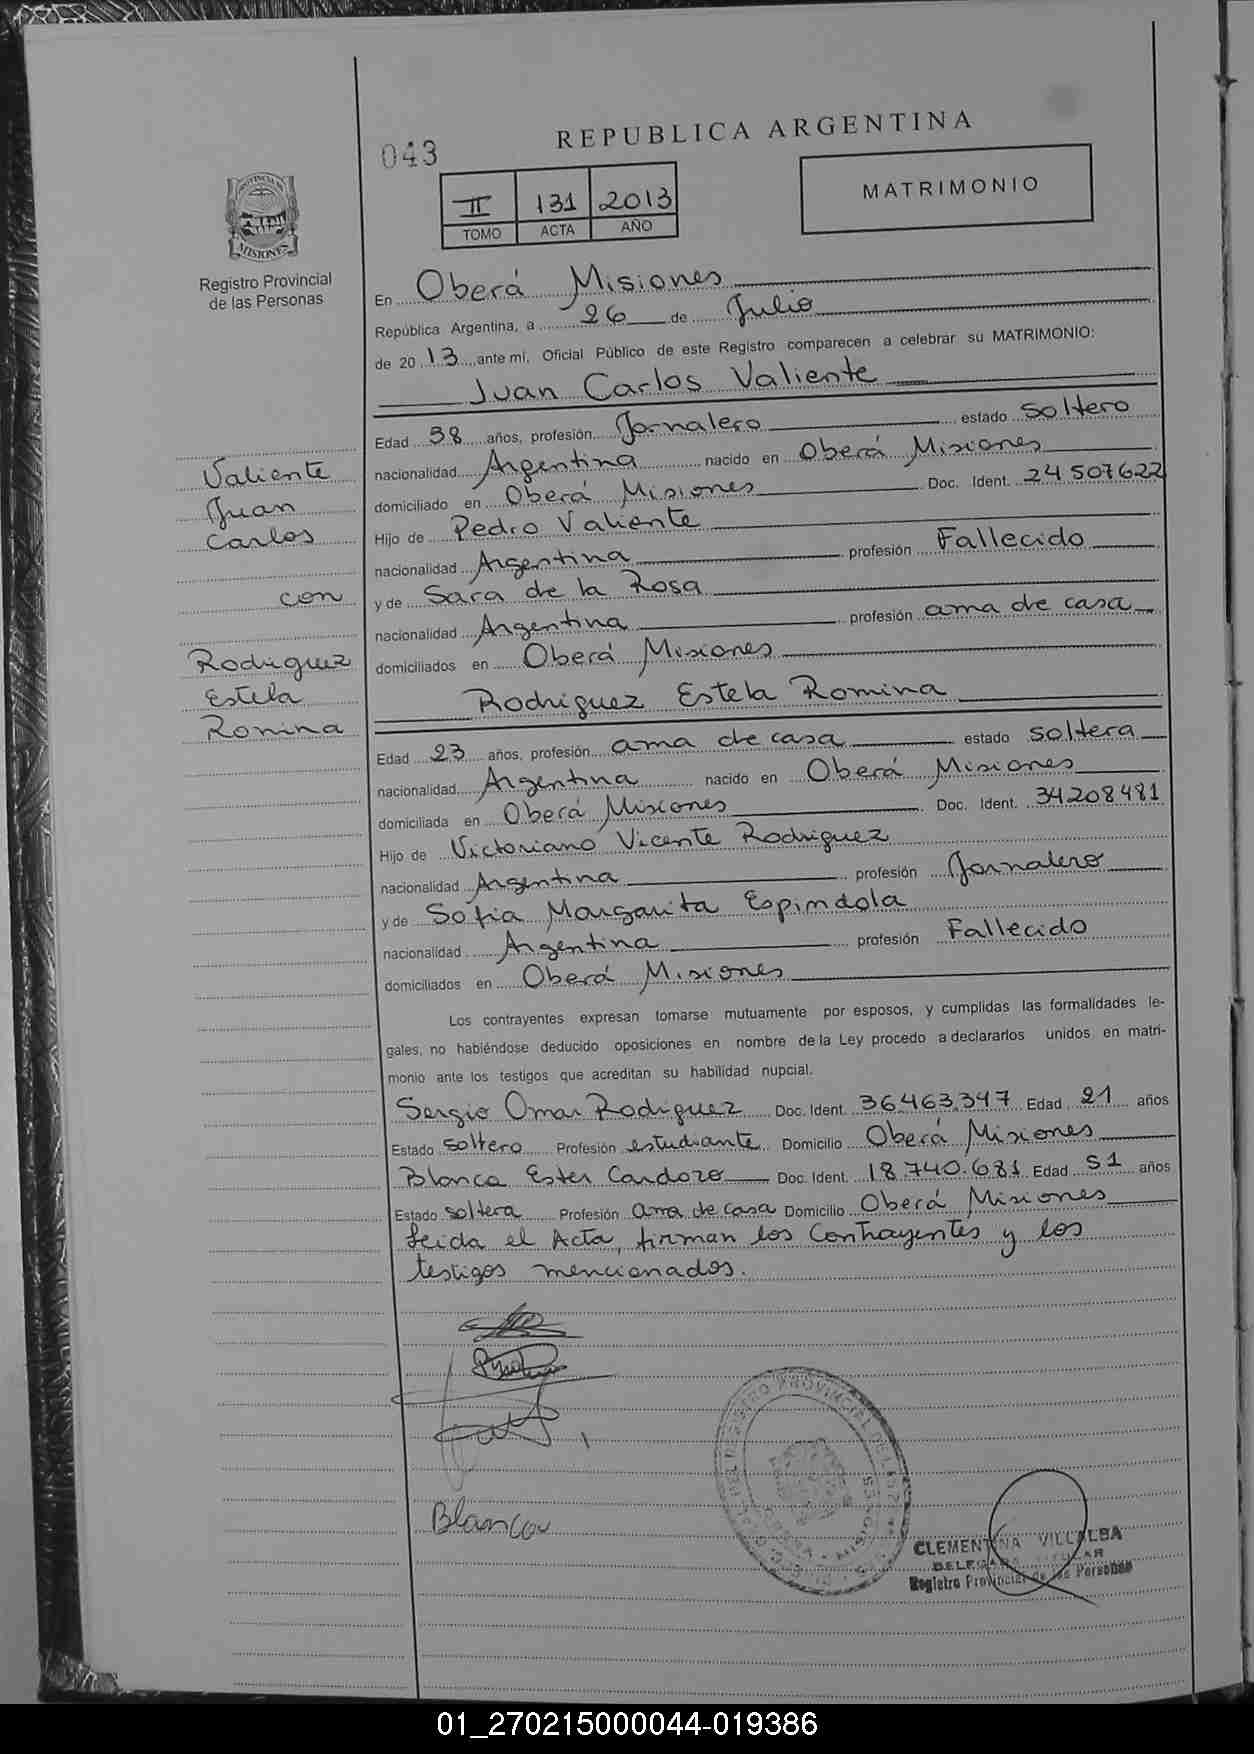 043
REPUBLICA ARGENTINA
II 131 2013
TOMO ACTA AÑO
MATRIMONIO
PROVINCIA DE
MISIONES
Registro Provincial
de las Personas
En Oberá Misiones
República Argentina, a 26 de Julio
de 20 13 ante mi, Oficial Público de este Registro comparecen a celebrar su MATRIMONIO:
Juan Carlos Valiente
Edad 38 años, profesión Jornalero estado soltero
nacionalidad Argentina nacido en Oberá Misiones
domiciliado en Oberá Misiones Doc. Ident. 24507622
Hijo de Pedro Valiente
nacionalidad Argentina profesión Fallecido
y de Sara de la Rosa
nacionalidad Argentina profesión ama de casa
domiciliados en Oberá Misiones
Valiente
Juan
Carlos
con
Rodriguez
Estela
Romina
Rodriguez Estela Romina
Edad 23 años, profesión ama de casa estado soltera
nacionalidad Argentina nacido en Oberá Misiones
domiciliada en Oberá Misiones Doc. Ident. 34208481
Hijo de Victoriano Vicente Rodriguez
nacionalidad Argentina profesión Jornalero
y de Sofia Margarita Espindola
nacionalidad Argentina profesión Fallecido
domiciliados en Oberá Misiones
Los contrayentes expresan tomarse mutuamente por esposos, y cumplidas las formalidades le-
gales, no habiéndose deducido oposiciones en nombre de la Ley procedo a declararlos unidos en matri-
monio ante los testigos que acreditan su habilidad nupcial.
Sergio Omar Rodriguez Doc. Ident. 36.463.347 Edad 21 años
Estado soltero Profesión estudiante Domicilio Oberá Misiones
Blanca Ester Cardozo Doc. Ident. 18.740.681 Edad 51 años
Estado soltera Profesión ama de casa Domicilio Oberá Misiones
Leida el Acta, firman los Contrayentes y los
testigos mencionados.
Blanca
CLEMENTINA VILLALBA
DELEGADA TITULAR
Registro Provincial de las Personas
01_270215000044-019386